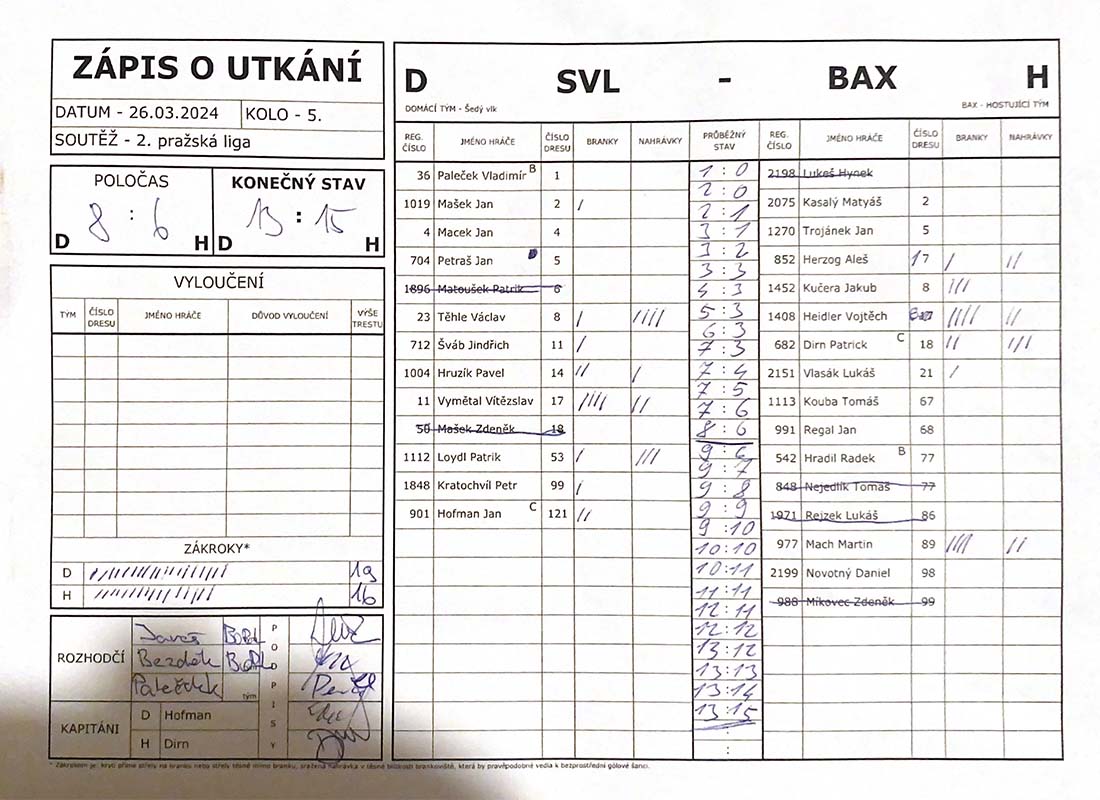 ZÁPIS O UTKÁNÍ
DATUM - 26.03.2024 KOLO - 5.
SOUTĚŽ - 2. pražská liga
POLOČAS KONEČNÝ STAV
8 : 6 13 : 15
D H D H
VYLOUČENÍ
TÝM ČÍSLO DRESU JMÉNO HRÁČE DŮVOD VYLOUČENÍ VÝŠE TRESTU
ZÁKROKY*
D 19
H 16
ROZHODČÍ
Bezděk
tým
PODPISY
KAPITÁNI
D Hofman
H Dirn
D SVL - BAX H
DOMÁCÍ TÝM - Šedý vlk BAX - HOSTUJÍCÍ TÝM
REG. ČÍSLO JMÉNO HRÁČE ČÍSLO DRESU BRANKY NAHRÁVKY PRŮBĚŽNÝ STAV REG. ČÍSLO JMÉNO HRÁČE ČÍSLO DRESU BRANKY NAHRÁVKY
36 Paleček Vladimír B 1
1019 Mašek Jan 2 /
4 Macek Jan 4
704 Petraš Jan 5
1896 Matoušek Patrik 6
23 Těhle Václav 8 / ////
712 Šváb Jindřich 11 /
1004 Hruzík Pavel 14 // /
11 Vymětal Vítězslav 17 //// //
50 Mašek Zdeněk 18
1112 Loydl Patrik 53 / ///
1848 Kratochvíl Petr 99 /
901 Hofman Jan C 121 //
1 : 0
2 : 0
2 : 1
3 : 1
3 : 2
3 : 3
4 : 3
5 : 3
6 : 3
7 : 3
7 : 4
7 : 5
7 : 6
8 : 6
9 : 6
9 : 7
9 : 8
9 : 9
9 : 10
10 : 10
10 : 11
11 : 11
12 : 11
12 : 12
13 : 12
13 : 13
13 : 14
13 : 15
:
2198 Lukeš Hynek
2075 Kasalý Matyáš 2
1270 Trojánek Jan 5
852 Herzog Aleš 17 / //
1452 Kučera Jakub 8 ///
1408 Heidler Vojtěch //// //
682 Dirn Patrick C 18 // ///
2151 Vlasák Lukáš 21 /
1113 Kouba Tomáš 67
991 Regal Jan 68
542 Hradil Radek B 77
848 Nejedlík Tomáš 77
1971 Rejzek Lukáš 86
977 Mach Martin 89 //// //
2199 Novotný Daniel 98
988 Mikovec Zdeněk 99
* Zákrokem je: krytí přímé střely na branku nebo střely těsně mimo branku, sražená nahrávka v těsné blízkosti brankoviště, která by pravěpodobně vedla k bezprostřední gólové šanci.